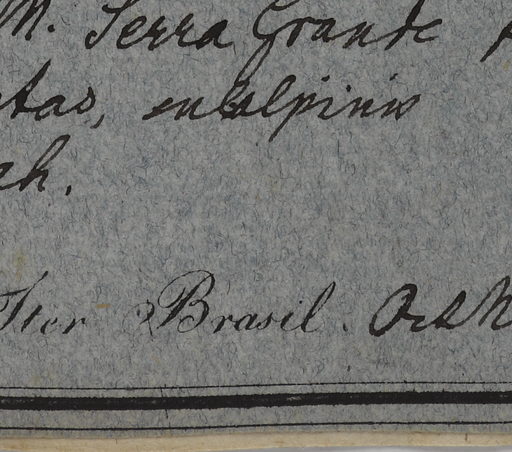 M. Serra Grande
etas, subalpinis
ch.
Iter Brasil. Oct